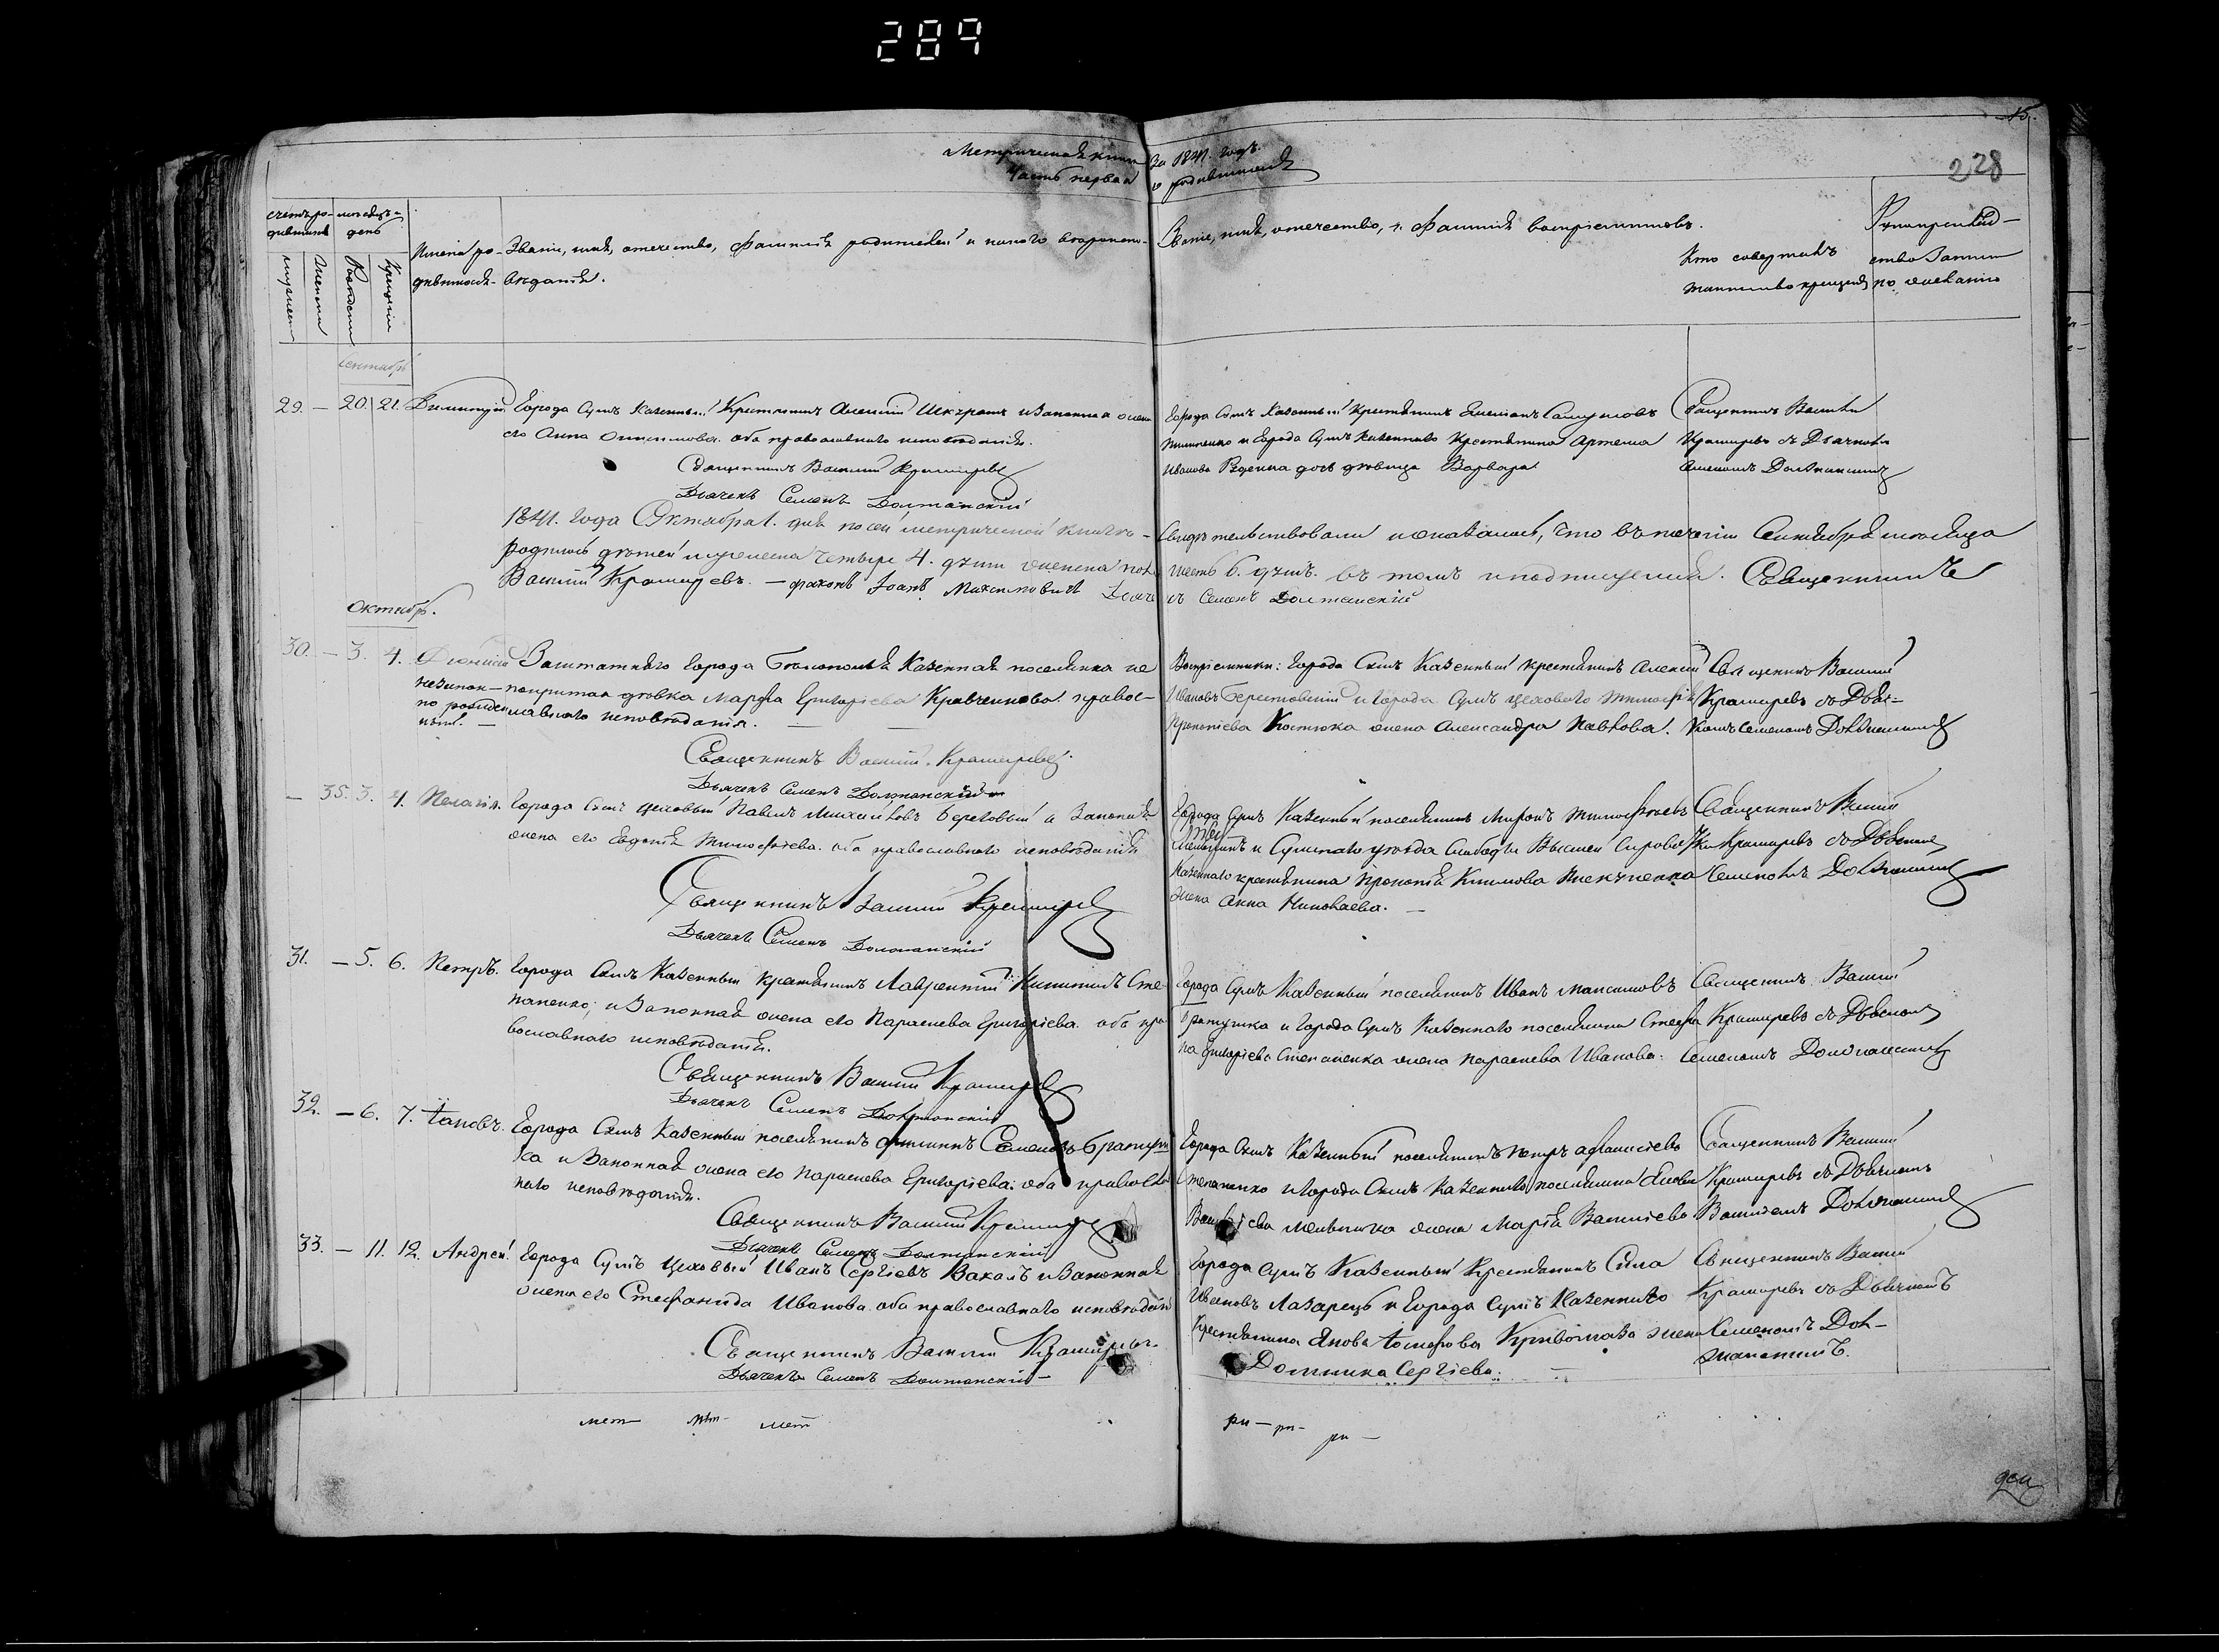 289
15.
228
Метрическая книга за 1841. годъ.
Часть первая о родившихся
счетъ ро-
дившихся
мѣсяцъ и
день
мужеска
женска
Рожденія
Крещенія
Имена ро-
дившихся.
Званіе, имя, отчество, фамилія родителей и какого вѣроиспо-
вѣданія.
Званіе, имя, отчество, и фамилія воспріемниковъ.
Кто совершалъ
таинство крещенія
Рукоприклад-
ство
по желанію
Сентябрь
29. — 20. 21. Димитрій
Города Сумъ Казенный Крестьянинъ Алексій и Законная жена
его Анна Онисимова. оба православнаго исповѣданія.
Священникъ Василій Краширевъ
Дьячекъ Семенъ Должанскій
Города Сумъ Казенный Крестьянинъ
и Города Сумъ Казеннаго Крестьянина Артема
Иванова дочь дѣвица Варвара
Священникъ Василій
Краширевъ съ Дьячкомъ
Семеномъ Должанскимъ
1841. Года Октября 1. дня по сей метрической книгѣ
свидѣтельствовали и оказалось, что въ теченіи Сентября мѣсяца
родилось дѣтей мужеска четыре 4. души женска пола
шесть 6. душъ. въ томъ и подписуемся. Священникъ
Василій Краширевъ. — діаконъ Іоанъ Максимовичъ Дьяче
къ Семенъ Должанскій
Октябрь.
30. — 3. 4. Діонисій
незакон-
но рожден-
ный. —
Заштатнаго города Бѣлополья Казенная поселянка не
покритая дѣвка Марфа Григоріева Кравченкова. правос-
лавнаго исповѣданія. —
Священникъ Василій Краширевъ.
Дьячекъ Семенъ Должанскій
Воспріемники: Города Сумъ Казенный крестьянинъ Алексій
Ивановъ Берестовскій и Города Сумъ цеховаго Тимофѣя
Прокопіева Костюка жена Александра Павлова.
Священникъ Василій
Краширевъ съ Дьяч-
комъ Семеномъ Должанскимъ
— 35. 3. 4. Пелагія.
Города Сумъ цеховый Павелъ Михайловъ Береговый и Законная
жена его Евдокія Тимофѣева. оба православнаго исповѣданія
Священникъ Василій Краширевъ
Дьячекъ Семенъ Должанскій
Города Сумъ Казенный поселянинъ Миронъ Тимофѣевъ
и Сумскаго уѣзда Слободы Высшей Сироватки
Казеннаго крестьянина Прокопія Климова
жена Анна Николаева. —
Священникъ Василій
Краширевъ съ Дьячкомъ
Семеномъ Должанскимъ
31. — 5. 6. Петръ.
Города Сумъ Казенный крестьянинъ Лаврентій Никитинъ Сте-
паненко; и Законная жена его Параскева Григоріева. оба пра
вославнаго исповѣданія.
Священникъ Василій Краширевъ
Дьячекъ Семенъ Должанскій
Города Сумъ Казенный поселянинъ Иванъ Максимовъ
и Города Сумъ Казеннаго поселянина Стефа
на Григоріева Степаненка жена Параскева Иванова.
Священникъ Василій
Краширевъ съ Дьячкомъ
Семеномъ Должанскимъ
32. — 6. 7. Іаковъ.
Города Сумъ Казенный поселянинъ Филиппъ Семеновъ Братуш
ка и Законная жена его Параскева Григоріева. оба правосла
наго исповѣданія.
Священникъ Василій Краширевъ
Дьячекъ Семенъ Должанскій
Города Сумъ Казенный поселянинъ Петръ Афанасіевъ
Степаненко и Города Сумъ Казеннаго поселянина Якова
Василіева Мельника жена Марія Василіева
Священникъ Василій
Краширевъ съ Дьячкомъ
Должанскимъ
33. — 11. 12. Андрей.
Города Сумъ Цеховый Иванъ Сергіевъ Вакалъ и Законная
жена его Стефанида Иванова. оба православнаго исповѣданія
Священникъ Василій Краширевъ.
Дьячекъ Семенъ Должанскій —
Города Сумъ Казенный Крестьянинъ Сила
Ивановъ Лазарецъ и Города Сумъ Казеннаго
Крестьянина Якова Іосифова жена
Домника Сергіева.
Священникъ Василій
Краширевъ съ Дьячкомъ
Семеномъ Дол-
жанскимъ.
ри — ри —
ри —